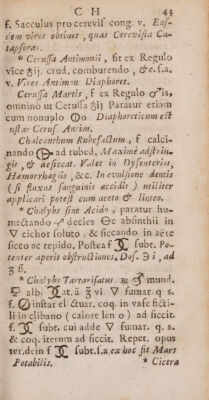 C H 43
f. Sacculus pro cerevis cong. v. Eas-
dem vires obtinet, quas Cerevisia Ca-
tapsoras.
* Cerussa Antimonii, fit ex Regulo
vice ℥ij. crud. comburendo, &c. s.a.
v. Vires Antimon Diaphoret.
Cerussa Martis, f ex Regulo ♂is,
omnino ut Cerussa ♁ij Paratur etiam
cum nonuplo Diaphoreticum est
instar Ceruf. Antim.
Chalcanthum Rubefactum, f calci-
nando ad rubed. Maxime adstrin-
git, & desiccat. Valet in Dysenteriis,
Hæmorrhagiis, &c. In evulsione dentis
(si fluxus sanguinis accidis) utiliter
applicari potest cum aceto & linteo.
* Chalybs sine Acido, paratur hu-
mectando ♂ decies absinthii in
▽ eichor soluto, & siccando in aëre
sicco ac tepido. Postea f subt. Po-
tenter aperit obstructiones. Dos. ℈ i, ad
℥ ß.
* Chalybs Tartarisatus ℞ ♂ mund.
alb. at. ā ℥ vi. ▽ fumar. q s.
f. instar el ctuar. coq. in vase ficti-
li in clibano ( calore len o) ad siccit.
f. subt. cui adde ▽ fumar. q. s.
& coq. iterum ad siccit. Repet. opus
ter.dein f subt.s.a ex hoc fit Mars
Potabilis. * Cicera